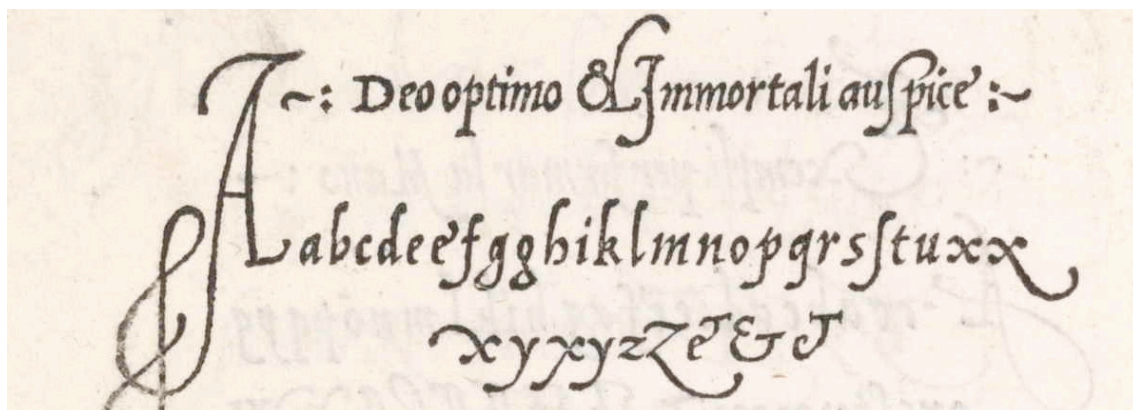 ~: Deo optimo & Immortali auſpice :~
A a b c d e e f g g h i k l m n o p q r s ſ t u x x
x y x y z Z & & &